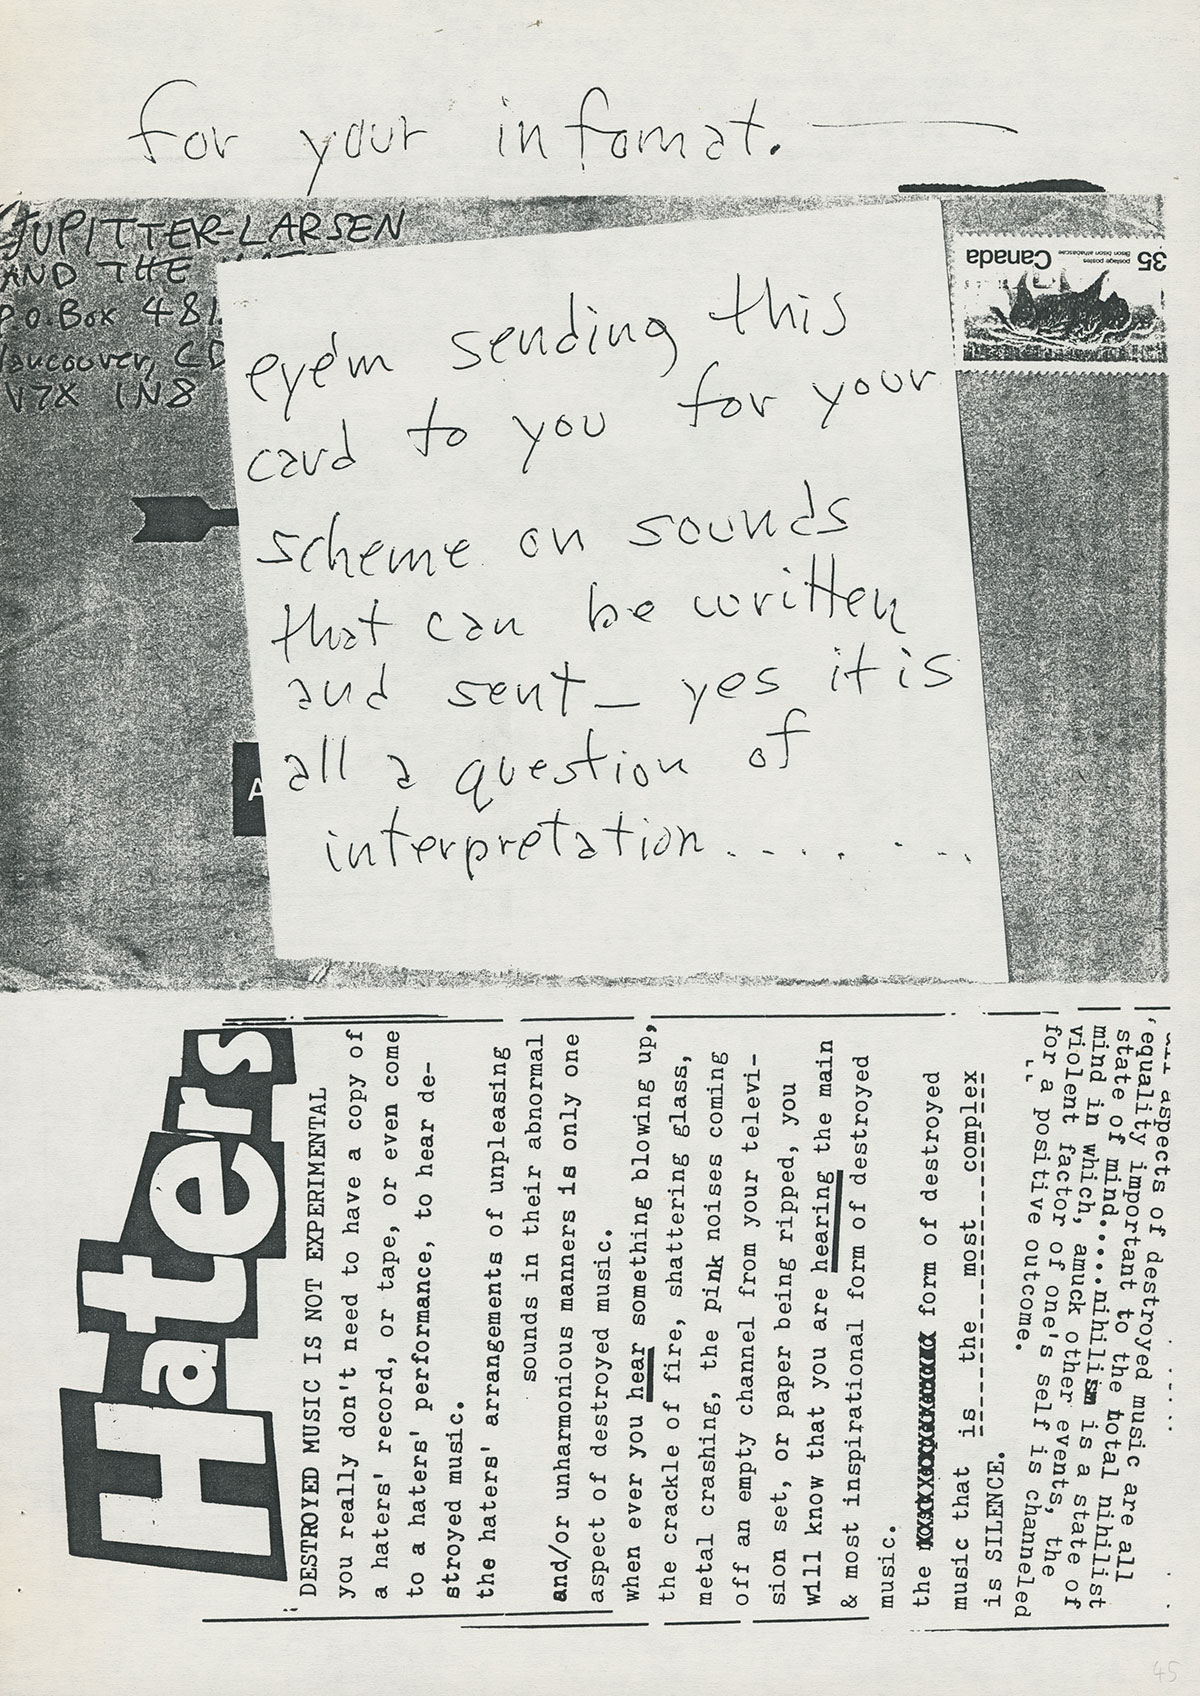 for your infomat.
JUPITTER-LARSEN
AND THE
P.O. Box 481
Vancouver, CD
V7X 1N8
35
postage postes
Bison bison athabascae
Canada
eye'm sending this
card to you for your
scheme on sounds
that can be written
and sent_ yes it is
all a question of
interpretation........
A
Haters
DESTROYED MUSIC IS NOT EXPERIMENTAL
you really don't need to have a copy of
a haters' record, or tape, or even come
to a haters' performance, to hear de-
stroyed music.
the haters' arrangements of unpleasing
sounds in their abnormal
and/or unharmonious manners is only one
aspect of destroyed music.
when ever you hear something blowing up,
the crackle of fire, shattering glass,
metal crashing, the pink noises coming
off an empty channel from your televi-
sion set, or paper being ripped, you
will know that you are hearing the main
& most inspirational form of destroyed
music.
the form of destroyed
music that is the most complex
is SILENCE.
aspects of destroyed music are all
equality important to the total nihilist
state of mind.....nihilism is a state of
mind in which, amuck other events, the
violent factor of one's self is channeled
for a positive outcome.
45